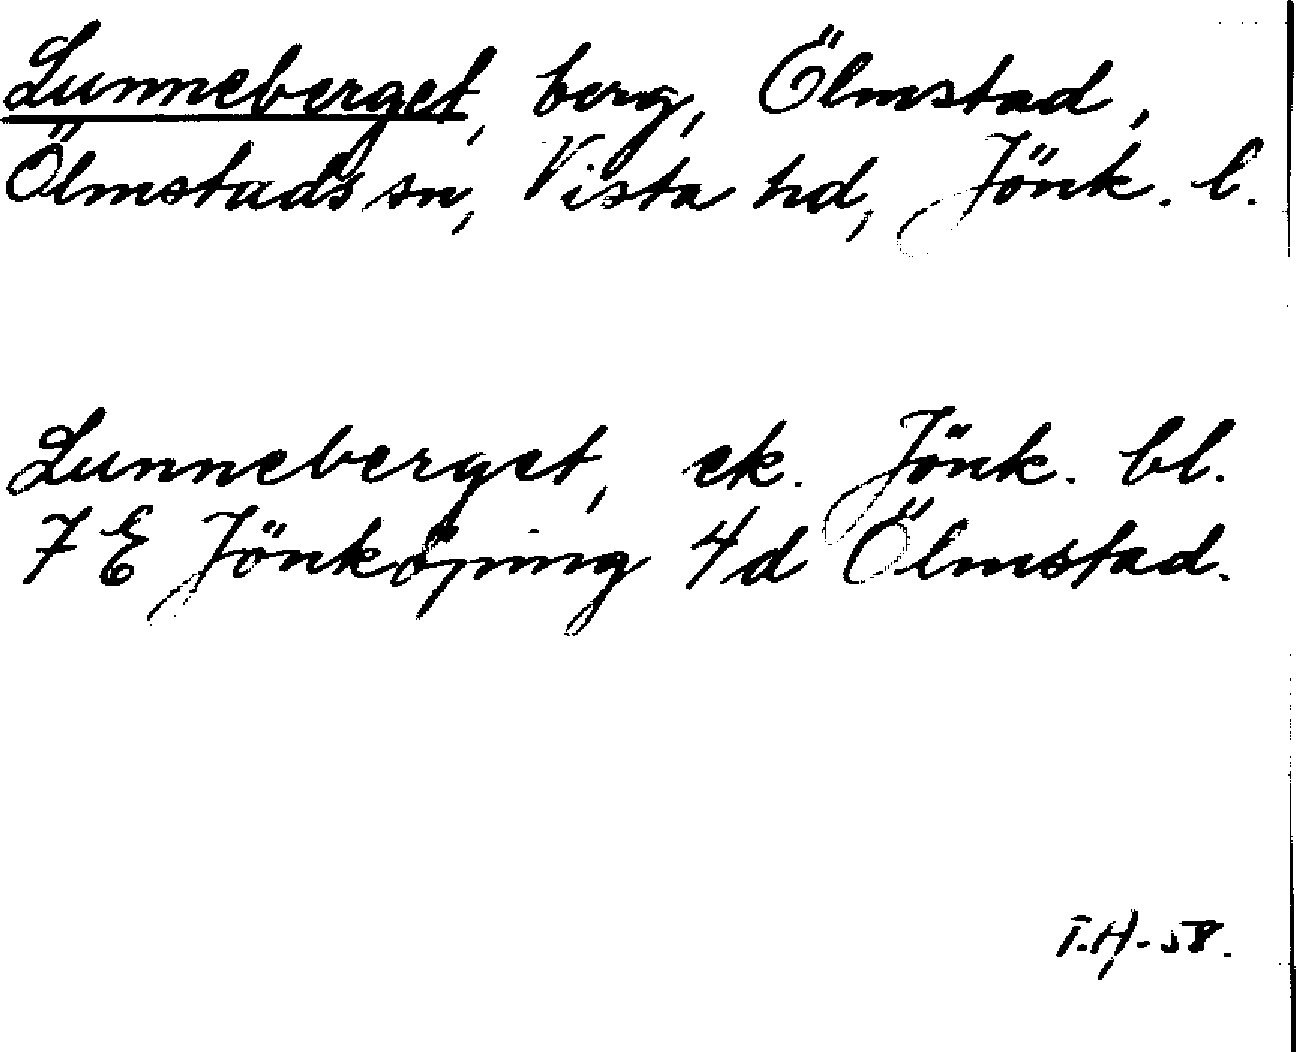 Lunneberget, berg, Ölmstad,
Ölmstads sn, Vista hd, Jönk. l.
Lunneberget, ek. Jönk. bl.
7 E Jönköping 4d Ölmstad.
T.H-58.